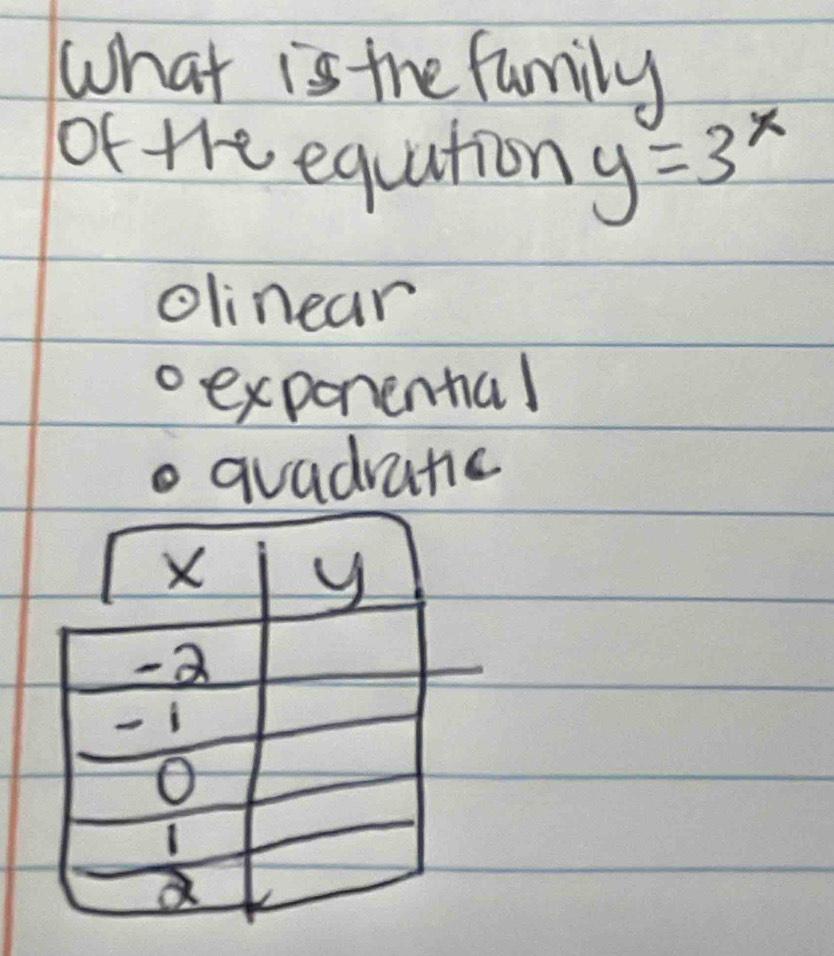 What is the family
Of the equation y = 3^x
○ linear
○ exponential
○ quadratic
x | y
-2
-1
0
1
2